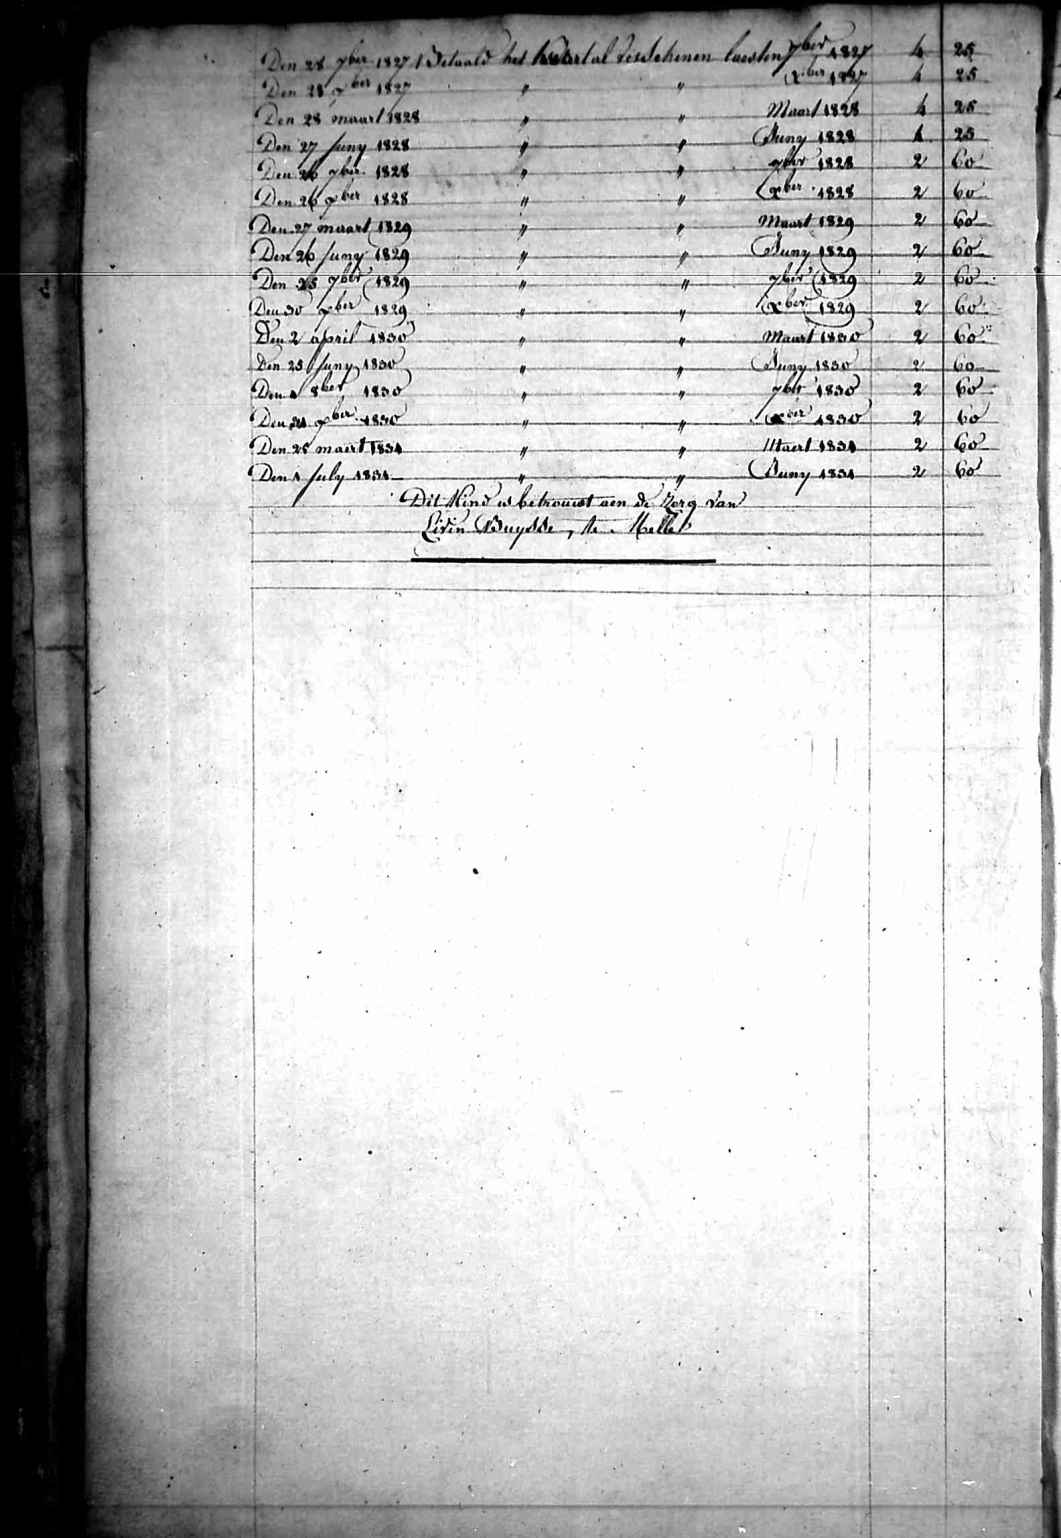 Den 28 7ber 1827 Betaald het kwartal verschenen laesten 7ber 1827 4 25
Den 28 xber 1827 " " xber 1827 4 25
Den 28 maart 1828 " " Maart 1828 4 25
Den 27 Juny 1828 " " Juny 1828 4 25
Den 26 7ber 1828 " " 7ber 1828 2 60
Den 26 xber 1828 " " xber 1828 2 60
Den 27 maart 1829 " " Maart 1829 2 60
Den 26 Juny 1829 " " Juny 1829 2 60
Den 25 7ber 1829 " " 7ber 1829 2 60
Den 30 xber 1829 " " xber 1829 2 60
Den 2 april 1830 " " Maart 1830 2 60
Den 25 Juny 1830 " " Juny 1830 2 60
Den 1 8ber 1830 " " 7ber 1830 2 60
Den xber 1830 " " xber 1830 2 60
Den 25 maert 1831 " " Maert 1831 2 60
Den 1 July 1831 " " Juny 1831 2 60
Dit Kind is betrouwt aen de Zorg van
Livin Buysse, te Melle